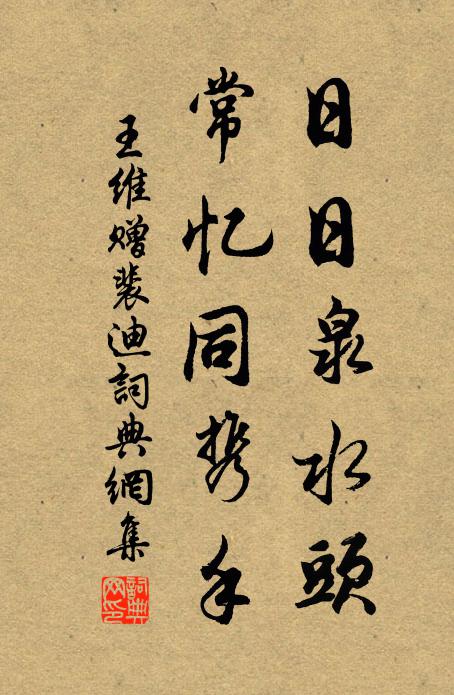 日日泉水頭
常忆同携手
王維贈裴迪詞典網集
詞典网印